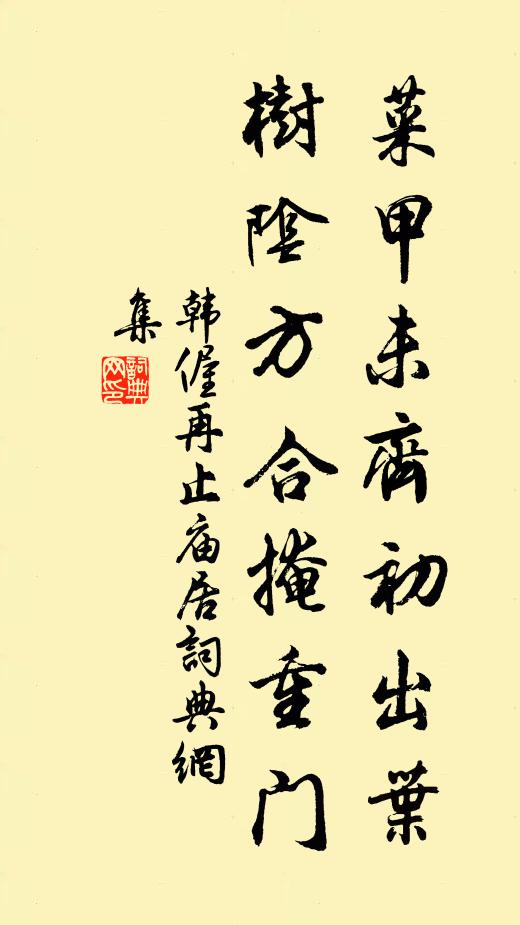 菜甲未齊初出葉
樹陰方合掩重門
韩偓再止庙居詞典網
集
詞典
网印